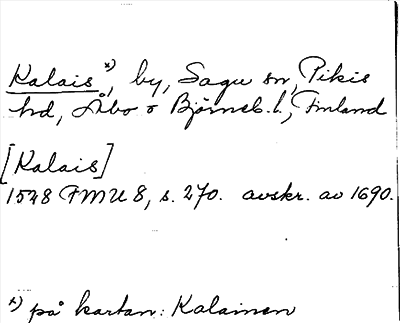 Kalais x), by, Sagu sn, Pikis
hd, Åbo o Björneb. l., Finland
[Kalais]
1548 FMU 8, s. 270. avskr. av 1690.
x) på kartan: Kalainen